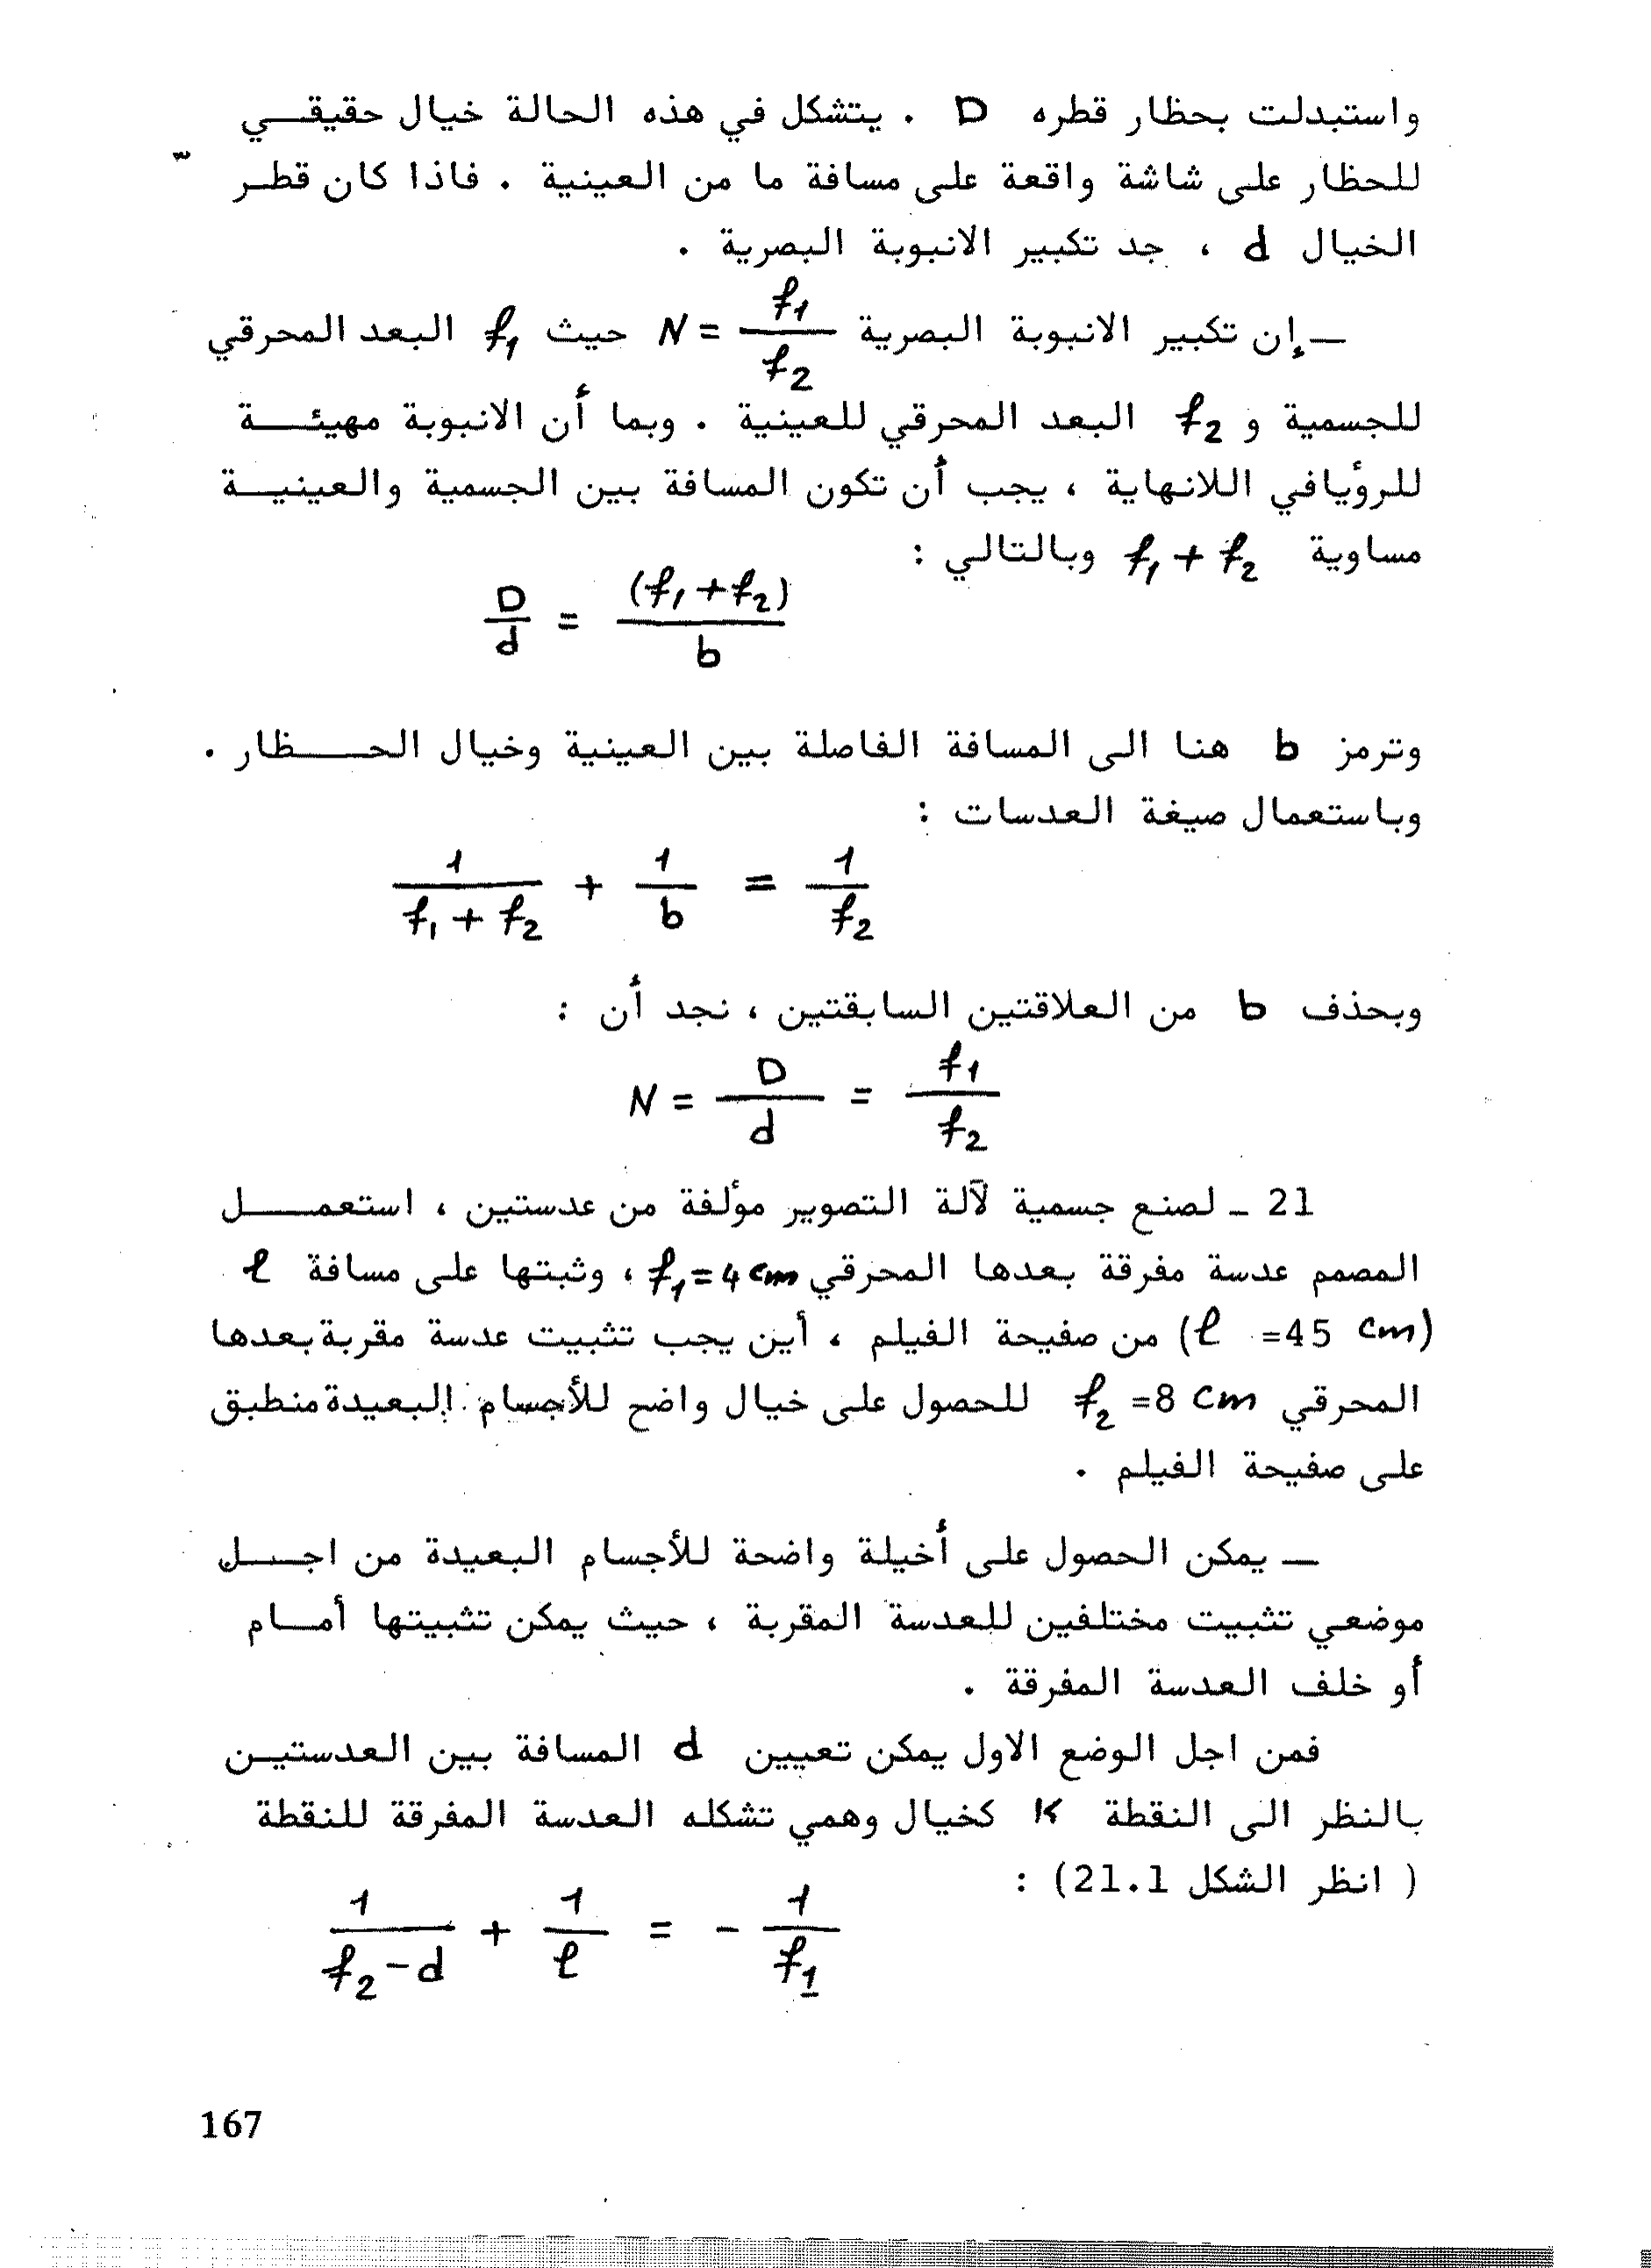 واستبدلت بحظار قطره D . يتشكل في هذه الحالة خيال حقيقي
للحظار على شاشة واقعة على مسافة ما من العينية . فاذا كان قطر
الخيال d ، جد تكبير الانبوبة البصرية .
— إن تكبير الانبوبة البصرية N = f1 / f2 حيث f1 البعد المحرقي
للجسمية و f2 البعد المحرقي للعينية . وبما أن الانبوبة مهيئة
للرؤيا في اللانهاية ، يجب أن تكون المسافة بين الجسمية والعينية
مساوية f1 + f2 وبالتالي :
D / d = (f1 + f2) / b
وترمز b هنا الى المسافة الفاصلة بين العينية وخيال الحظار .
وباستعمال صيغة العدسات :
1 / (f1 + f2) + 1 / b = 1 / f2
وبحذف b من العلاقتين السابقتين ، نجد أن :
N = D / d = f1 / f2
21 - لصنع جسمية لآلة التصوير مؤلفة من عدستين ، استعمل
المصمم عدسة مفرقة بعدها المحرقي f1 = 4 cm ، وثبتها على مسافة ℓ
(ℓ = 45 cm) من صفيحة الفيلم ، أين يجب تثبيت عدسة مقربة بعدها
المحرقي f2 = 8 cm للحصول على خيال واضح للأجسام البعيدة منطبق
على صفيحة الفيلم .
— يمكن الحصول على أخيلة واضحة للأجسام البعيدة من اجل
موضعي تثبيت مختلفين للعدسة المقربة ، حيث يمكن تثبيتها أمام
أو خلف العدسة المفرقة .
فمن اجل الوضع الاول يمكن تعيين d المسافة بين العدستين
بالنظر الى النقطة K كخيال وهمي تشكله العدسة المفرقة للنقطة
( انظر الشكل 21.1) :
1 / (f2 - d) + 1 / ℓ = - 1 / f1
167